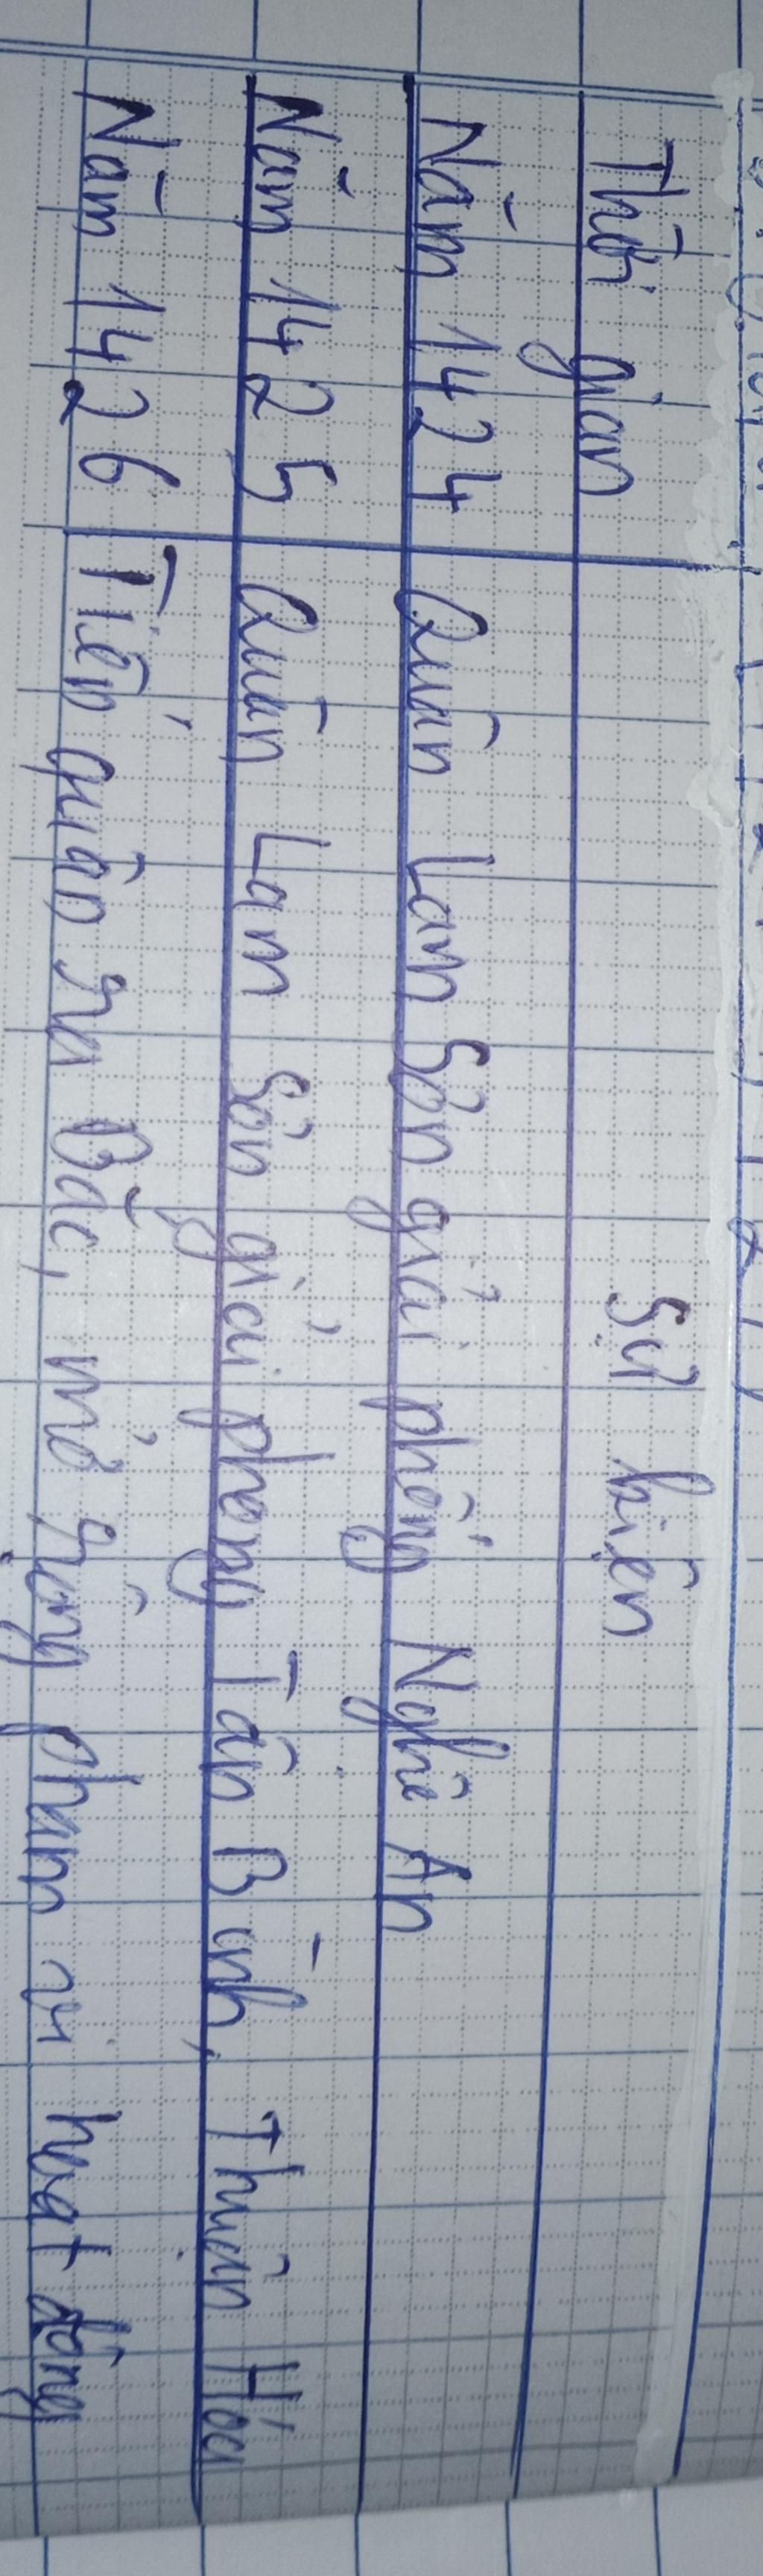 Thời gian Sự kiện
Năm 1424 Quân Lam Sơn giải phóng Nghệ An
Năm 1425 Quân Lam Sơn giải phóng Tân Bình, Thuận Hóa
Năm 1426 Tiến quân ra Bắc, mở rộng phạm vi hoạt động